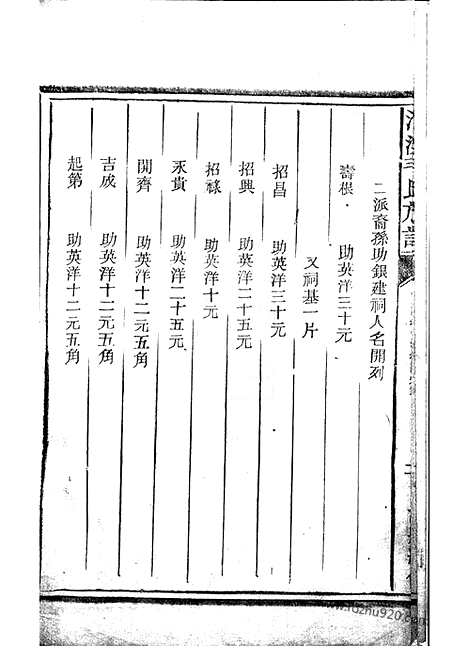 二派裔孫助銀建祠人名開列
壽根 助英洋三十元
又祠基一片
招昌 助英洋三十元
招興 助英洋二十五元
招祿 助英洋十元
永貴 助英洋二十五元
開齊 助英洋十二元五角
吉成 助英洋十二元五角
起第 助英洋十二元五角